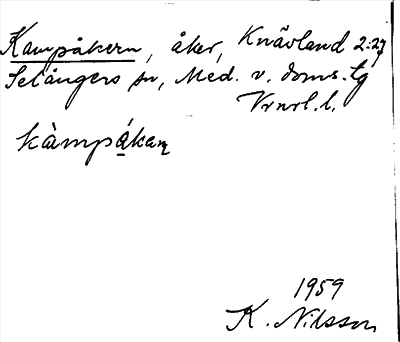 Kampåkern, åker, Knävland 2:27
Selångers sn, Med. v. doms. tg
Vrnrl. l.
kàmpákaṇ
1959
K. Nilsson